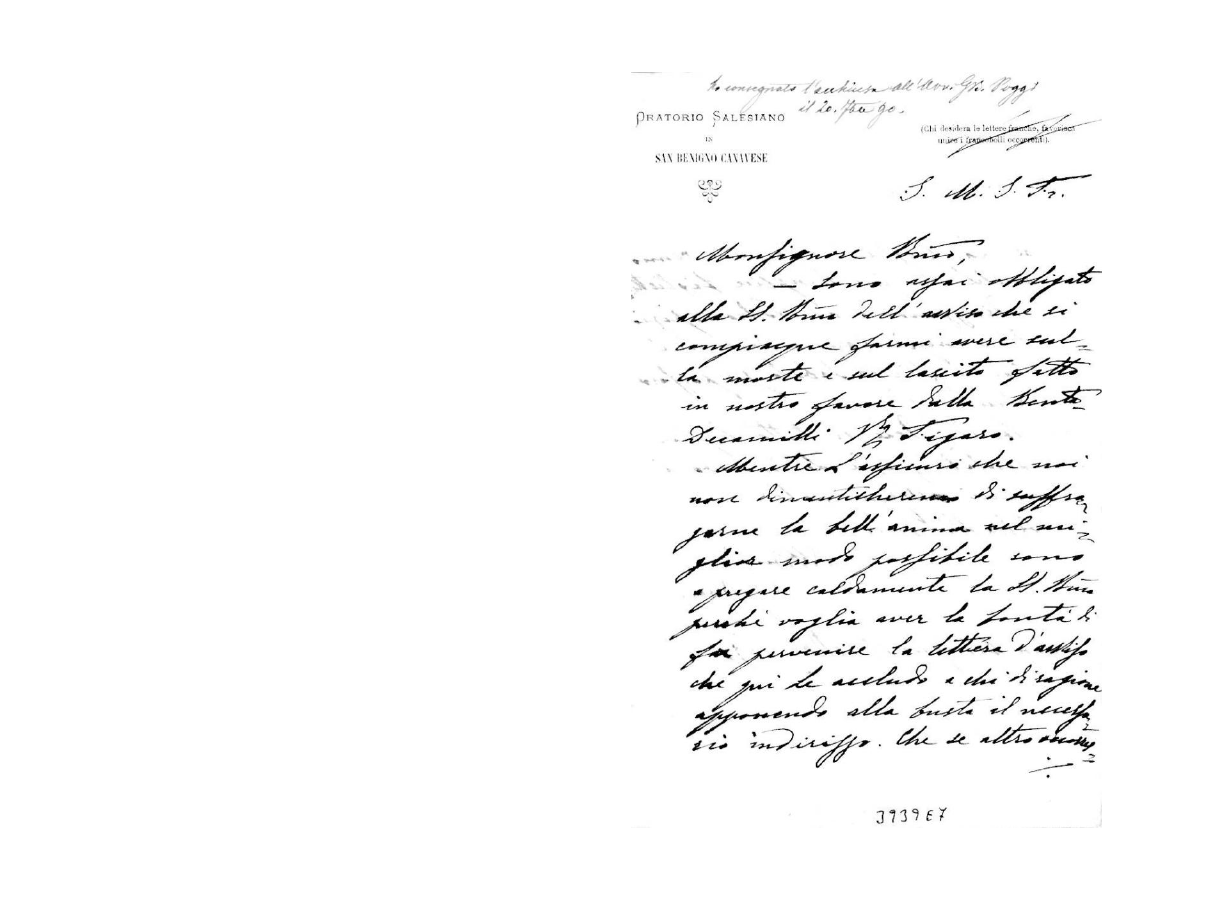 ho consegnato l'acchiusa all'Avv. GB. Poggi
il 20. 90.
ORATORIO SALESIANO
IN
SAN BENIGNO CANAVESE
(Chi desidera le lettere franche, favorisca
unire i francobolli occorrenti).
S. M. S. Fr.
Monsignore Rmo,
— Sono assai obbligato
alla S. V. Rma dell'avviso che si
compiacque farmi avere sul-
la morte e sul lascito fatto
in nostro favore dalla
Decamilli Figaro.
Mentre L'assicuro che noi
non dimenticheremo di suffra-
garne la bell'anima nel mi-
glior modo possibile sono
a pregare caldamente la S. V. Rma
perchè voglia aver la bontà di
far pervenire la lettera d'avviso
che qui Le accludo a chi di ragione
apponendo alla busta il necessa-
rio indirizzo. Che se altro occorres-
./.
3939E7